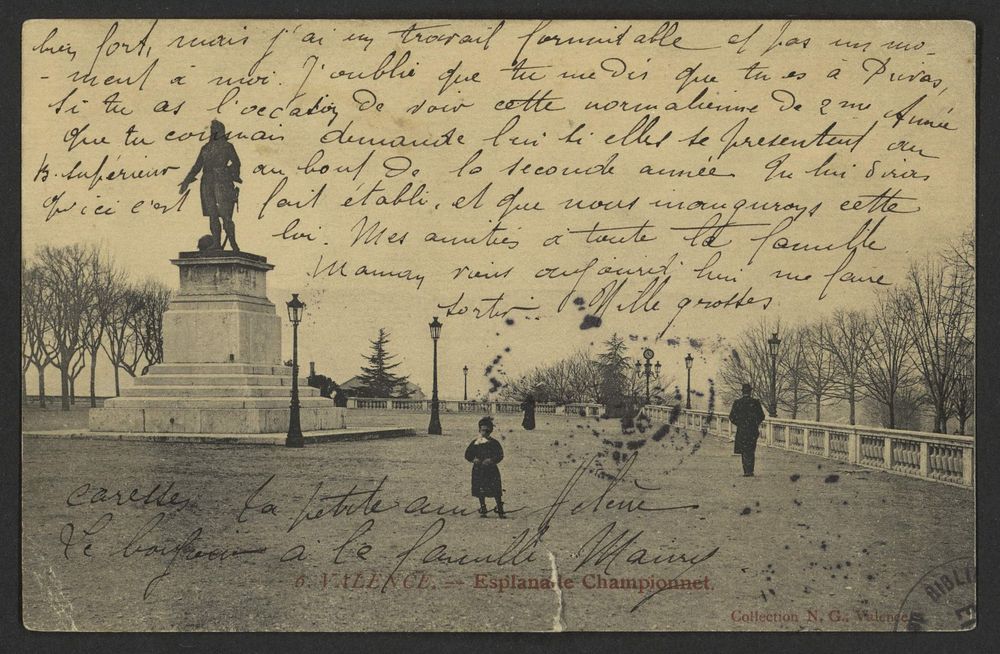 bien fort, mais j'ai un travail formidable et pas un mo-
- ment à moi. J'oublie que tu me dis que tu es à Privas,
Si tu as l'occasion de voir cette normalienne de 2me Année
que tu connais demande lui si elles se présentent au
B. supérieur au bout de la seconde année. Tu lui diras
qu'ici c'est fait établi, et que nous inaugurons cette
loi. Mes amitiés à toute la famille
Maman viens aujourd'hui me faire
sortir. Mille grosses
caresses. Ta petite amie Hélène
Le bonjour à la famille
6. VALENCE. — Esplanade Championnet.
Collection N. G., Valence
BIBLI